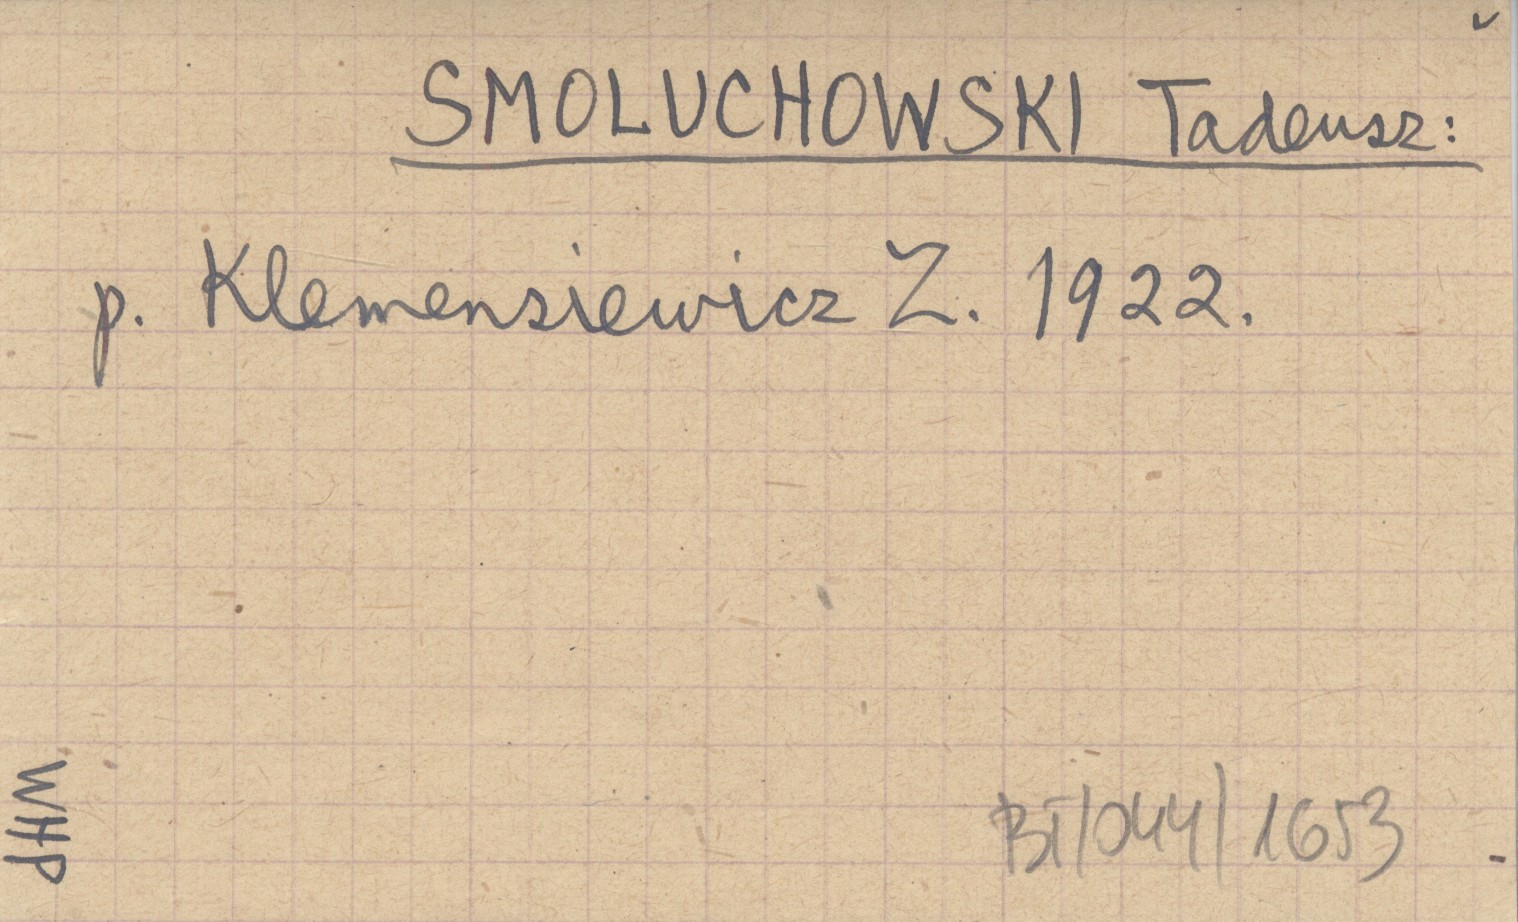 SMOLUCHOWSKI Tadeusz:
p. Klemensiewicz Z. 1922.
WHP
BI/044/1653